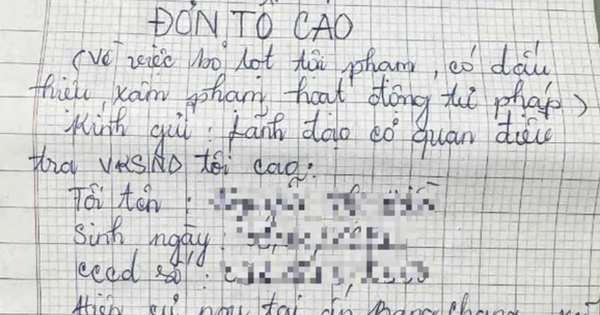 ĐƠN TỐ CÁO
(Về việc bỏ lọt tội phạm, có dấu
hiệu xâm phạm hoạt động tư pháp)
Kính gửi: Lãnh đạo cơ quan điều
tra VKSND tối cao:
Tôi tên:
Sinh ngày:
cccd số:
Hiện cư ngụ tại ấn